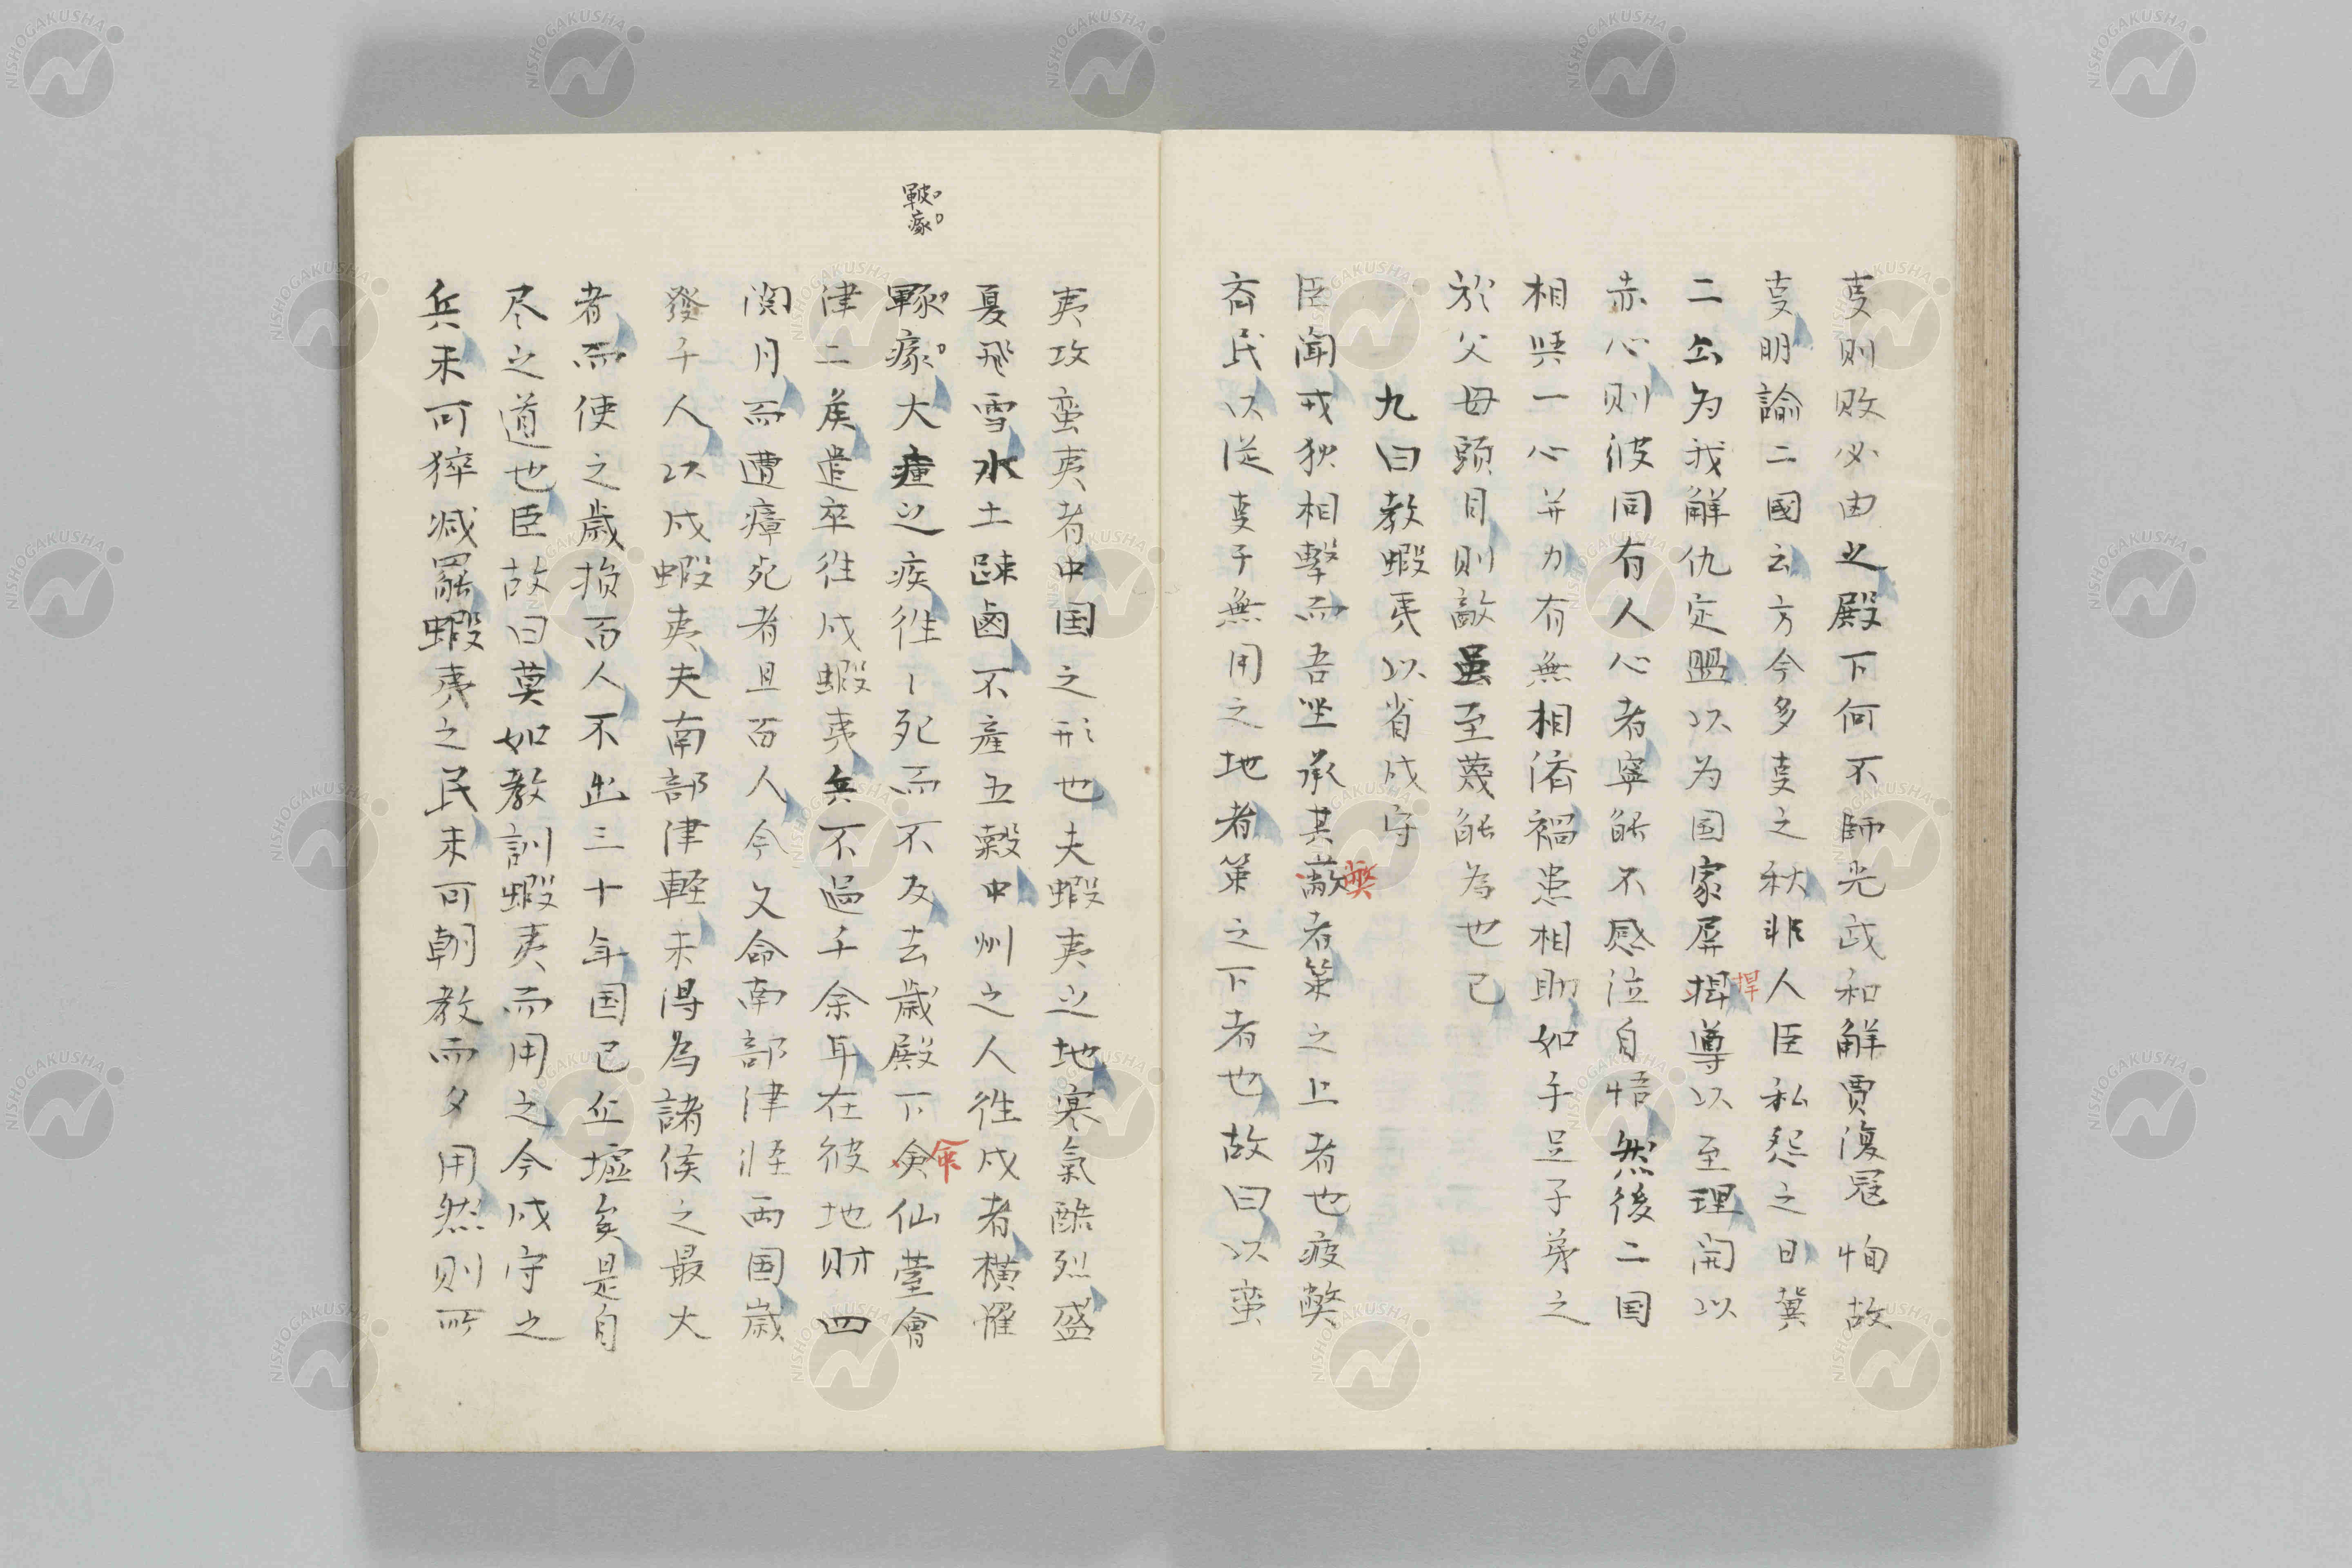 叓則敗必由之殿下何不師光武和觧賈復冦恂故
叓明諭二國云方今多叓之秋非人臣私怨之日冀
二公为我觧仇定盟以为国家屏捍尊以至理開以
捍
赤心則彼同有人心者寧能不感泣自悟然後二国
相與一心并力有無相済禍患相助如手足子弟之
於父母頭目則敵虽至蔑能為也已
九曰教蝦夷以省戍守
臣聞戎狄相擊而吾坐承其敝者策之上者也疲弊
弊
斉民以従叓于無用之地者策之下者也故曰以蛮
夷攻蛮夷者中国之形也夫蝦夷之地寒氣酷烈盛
夏飛雪水土踈鹵不産五糓中州之人徃戍者横罹
皸瘃
瘃大瘇之疾徃〻死而不及去歳殿下命仙䑓會
命
津二矦遣卒徃戍蝦夷兵不過千余耳在彼地財四
閲月而遭瘴死者且百人今又命南部津軽両国歳
發千人以戍蝦夷夫南部津軽未得為諸侯之最大
者而使之歳損百人不出三十年国已丘墟矣是自
尽之道也臣故曰莫如教訓蝦夷而用之今戍守之
兵未可猝減罷蝦夷之民未可朝教而夕用然則所